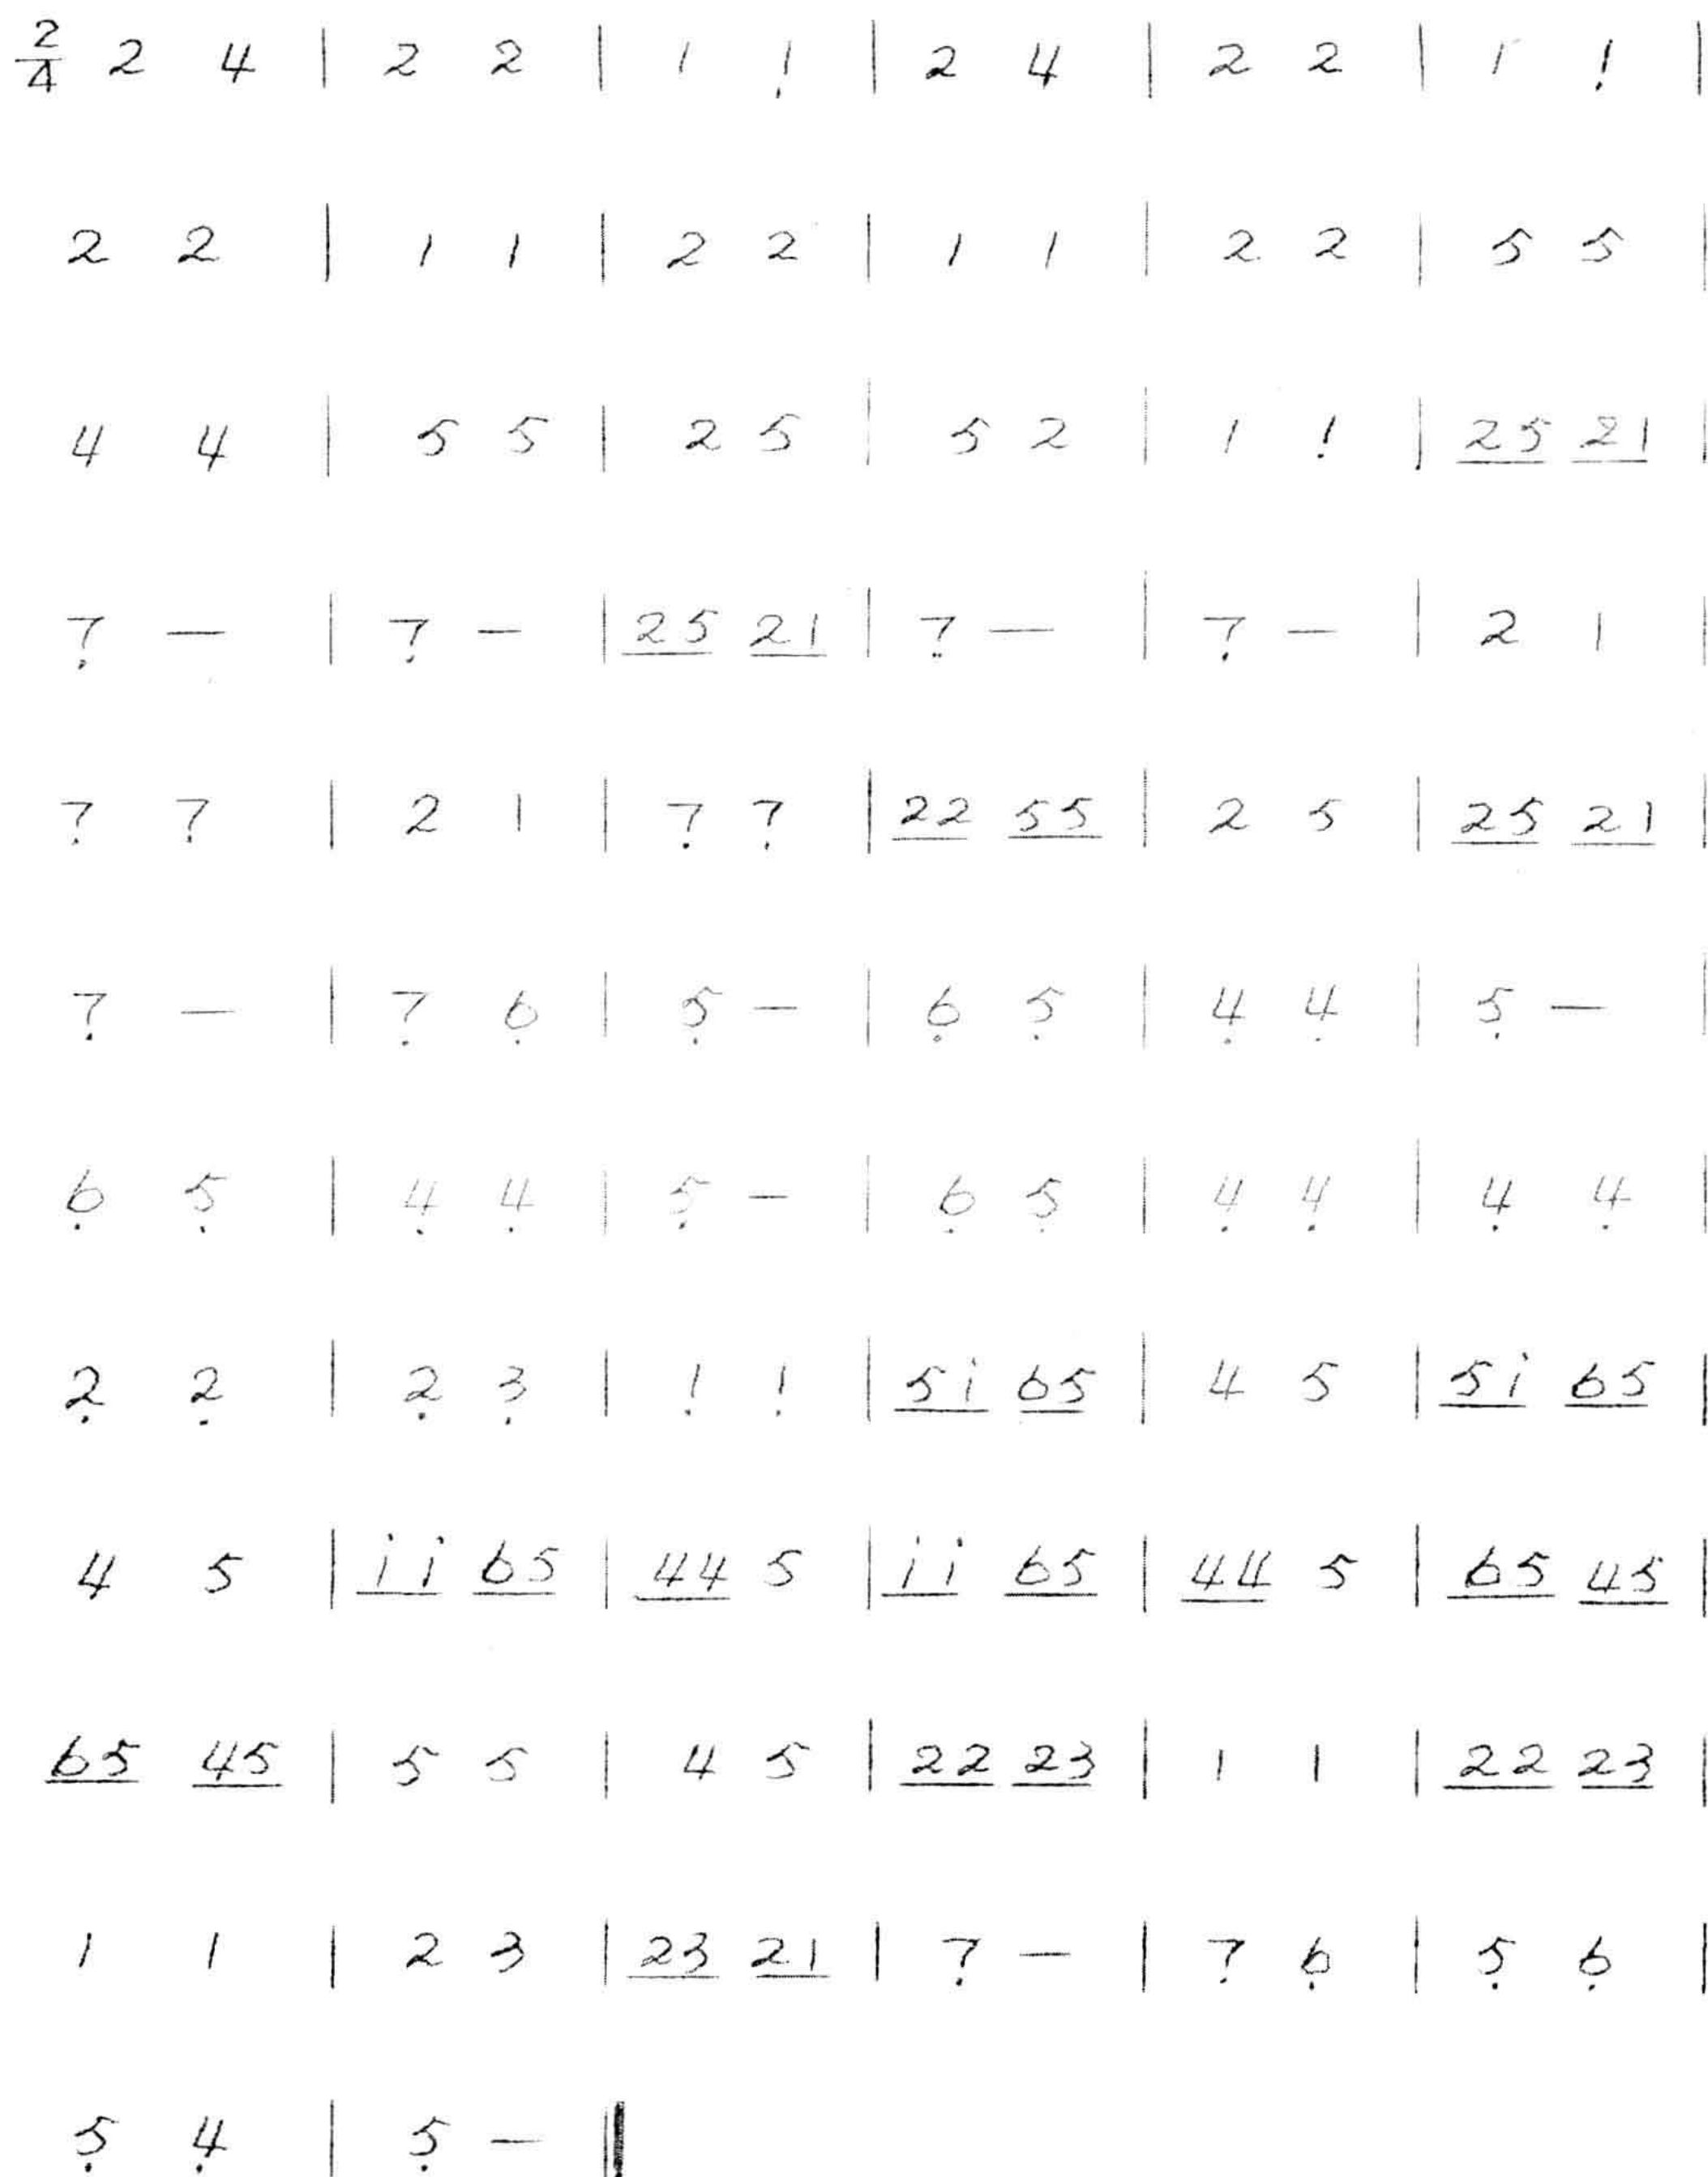 2/4 2 4 | 2 2 | 1 1̣ | 2 4 | 2 2 | 1 1̣ |
2 2 | 1 1 | 2 2 | 1 1 | 2 2 | 5 5 |
4 4 | 5 5 | 2 5 | 5 2 | 1 1̣ | 25 21 |
7̣ — | 7̣ — | 25 21 | 7̣ — | 7̣ — | 2 1 |
7̣ 7̣ | 2 1 | 7̣ 7̣ | 22 55 | 2 5 | 25 21 |
7̣ — | 7̣ 6̣ | 5̣ — | 6̣ 5̣ | 4̣ 4̣ | 5̣ — |
6̣ 5̣ | 4̣ 4̣ | 5̣ — | 6̣ 5̣ | 4̣ 4̣ | 4̣ 4̣ |
2̣ 2̣ | 2̣ 3̣ | 1̣ 1̣ | 51̇ 65 | 4 5 | 51̇ 65 |
4 5 | 1̇1̇ 65 | 44 5 | 1̇1̇ 65 | 44 5 | 65 45 |
65 45 | 5 5 | 4 5 | 22 23 | 1 1 | 22 23 |
1 1 | 2 3 | 23 21 | 7̣ — | 7̣ 6̣ | 5̣ 6̣ |
5̣ 4̣ | 5̣ — ‖